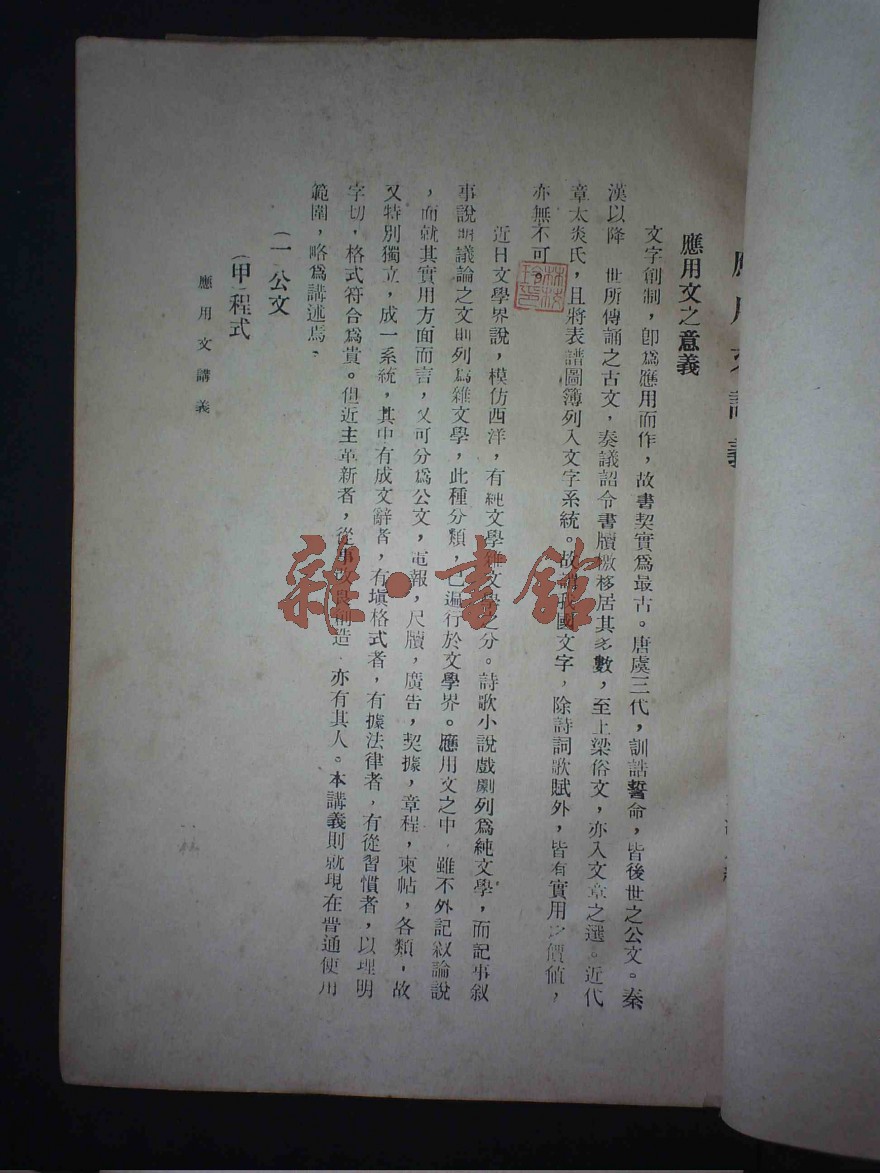 應用文講義
應用文之意義
文字創制，卽爲應用而作，故書契實爲最古。唐虞三代，訓誥誓命，皆後世之公文。秦
漢以降　世所傳誦之古文，奏議詔令書牘檄移居其多數，至上梁俗文，亦入文章之選。近代
章太炎氏，且將表譜圖簿列入文字系統。故謂我國文字，除詩詞歌賦外，皆有實用之價値，
亦無不可。
近日文學界說，模仿西洋，有純文學雜文學之分。詩歌小說戲劇列爲純文學，而記事叙
事說明議論之文則列爲雜文學，此種分類，已遍行於文學界。應用文之中，雖不外記叙論說
，而就其實用方面而言，又可分爲公文，電報，尺牘，廣告，契據，章程，柬帖，各類，故
又特別獨立，成一系統，其中有成文辭者，有塡格式者，有據法律者，有從習慣者，以理明
字切，格式符合爲貴。但近主革新者，從事改良創造，亦有其人。本講義則就現在普通使用
範圍，略爲講述焉。
（一　公文
（甲　程式
應用文講義
雜·書館